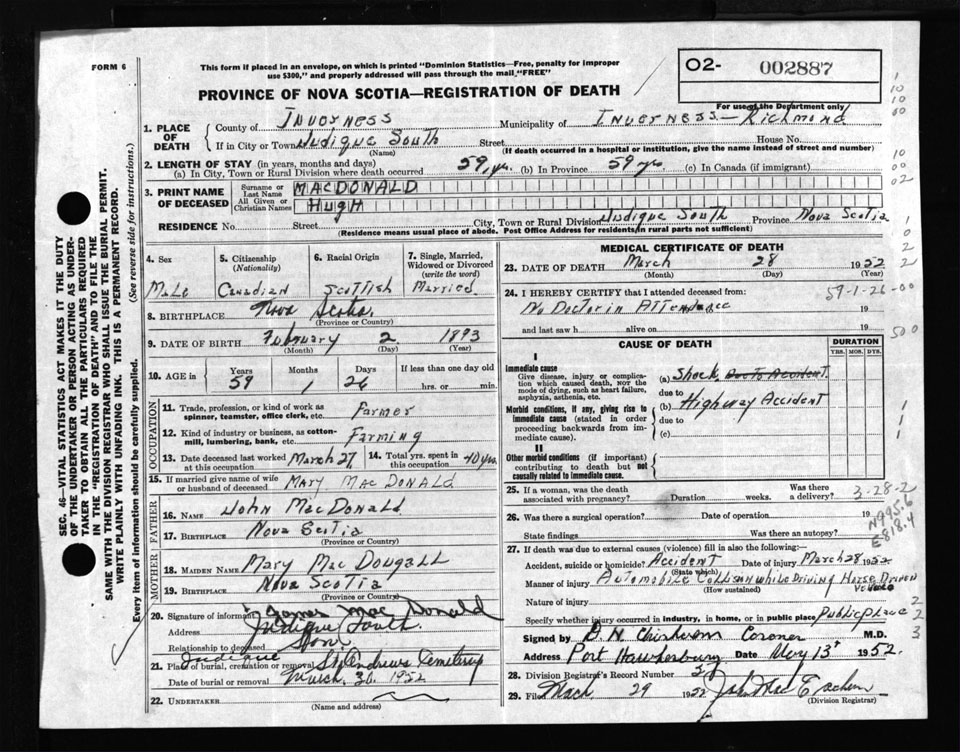 FORM 6
This form if placed in an envelope, on which is printed "Dominion Statistics—Free, penalty for improper
use $300," and properly addressed will pass through the mail "FREE"
PROVINCE OF NOVA SCOTIA—REGISTRATION OF DEATH
O2- 002887
For use of the Department only
1. PLACE OF DEATH
County of INVERNESS Municipality of INVERNESS—Richmond
If in City or Town Judique South Street House No.
(Name) (If death occurred in a hospital or institution, give the name instead of street and number)
2. LENGTH OF STAY (in years, months and days)
(a) In City, Town or Rural Division where death occurred 59, yrs. (b) In Province 59 yrs. (c) In Canada (if immigrant)
3. PRINT NAME OF DECEASED
Surname or Last Name MACDONALD
All Given or Christian Names HUGH
RESIDENCE No. Street City, Town or Rural Division Judique South Province Nova Scotia
(Residence means usual place of abode. Post Office Address for residents in rural parts not sufficient)
4. Sex Male
5. Citizenship (Nationality) Canadian
6. Racial Origin Scottish
7. Single, Married, Widowed or Divorced (write the word) Married
8. BIRTHPLACE Nova Scotia
(Province or Country)
9. DATE OF BIRTH February 2 1893
(Month) (Day) (Year)
10. AGE in Years 59 Months 1 Days 26 If less than one day old
hrs. or min.
OCCUPATION
11. Trade, profession, or kind of work as spinner, teamster, office clerk, etc. Farmer
12. Kind of industry or business, as cotton-mill, lumbering, bank, etc. Farming
13. Date deceased last worked at this occupation March 27,
14. Total yrs. spent in this occupation 40 yrs.
15. If married give name of wife or husband of deceased MARY MAC DONALD
FATHER
16. Name John MacDonald
17. Birthplace Nova Scotia
(Province or Country)
MOTHER
18. MAIDEN NAME Mary MacDougall
19. BIRTHPLACE Nova Scotia
(Province or Country)
20. Signature of informant James MacDonald
Address Judique South
Relationship to deceased Son
21. Place of burial, cremation or removal Judique St. Andrews Cemetery
Date of burial or removal March, 30, 1952
22. UNDERTAKER
(Name and address)
MEDICAL CERTIFICATE OF DEATH
23. DATE OF DEATH March 28 1952
(Month) (Day) (Year)
24. I HEREBY CERTIFY that I attended deceased from: 59-1-26-00
No Doctor in Attendance 19
and last saw h alive on 19
CAUSE OF DEATH
DURATION
YRS. MOS. DYS.
I
Immediate cause
Give disease, injury or complication which caused death, not the mode of dying, such as heart failure, asphyxia, asthenia, etc.
(a) Shock, Due to Accident.
due to
Morbid conditions, if any, giving rise to immediate cause (stated in order proceeding backwards from immediate cause).
(b) Highway Accident
due to
(c)
II
Other morbid conditions (if important) contributing to death but not causally related to immediate cause.
25. If a woman, was the death associated with pregnancy? Duration weeks. Was there a delivery? 3-28-2
26. Was there a surgical operation? Date of operation 19
State findings Was there an autopsy?
E818.4
27. If death was due to external causes (violence) fill in also the following:—
Accident, suicide or homicide? Accident Date of injury March 28 1952
(State which)
Manner of injury Automobile Collision while Driving Horse Driven
(How sustained)
Nature of injury
Specify whether injury occurred in industry, in home, or in public place Public Place
Signed by Coroner M.D.
Address Port Hawkesbury Date May 13th 1952.
28. Division Registrar's Record Number
29. Filed March 29 1952
(Division Registrar)
SEC. 46—VITAL STATISTICS ACT MAKES IT THE DUTY
OF THE UNDERTAKER OR PERSON ACTING AS UNDER-
TAKER TO OBTAIN ALL THE PARTICULARS REQUIRED
IN THE "REGISTRATION OF DEATH" AND TO FILE THE
SAME WITH THE DIVISION REGISTRAR WHO SHALL ISSUE THE BURIAL PERMIT.
WRITE PLAINLY WITH UNFADING INK. THIS IS A PERMANENT RECORD.
Every item of information should be carefully supplied. (See reverse side for instructions.)